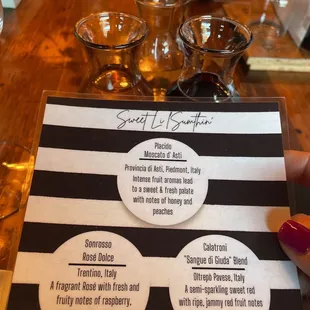 Sweet Li'l Sumthin'
Placido
Moscato d' Asti
Provincia di Asti, Piedmont, Italy
Intense fruit aromas lead
to a sweet & fresh palate
with notes of honey and
peaches
Sonrosso
Rosé Dolce
Trentino, Italy
A fragrant Rosé with fresh and
fruity notes of raspberry,
Calatroni
"Sangue di Giuda" Blend
Oltrepò Pavese, Italy
A semi-sparkling sweet red
with ripe, jammy red fruit notes